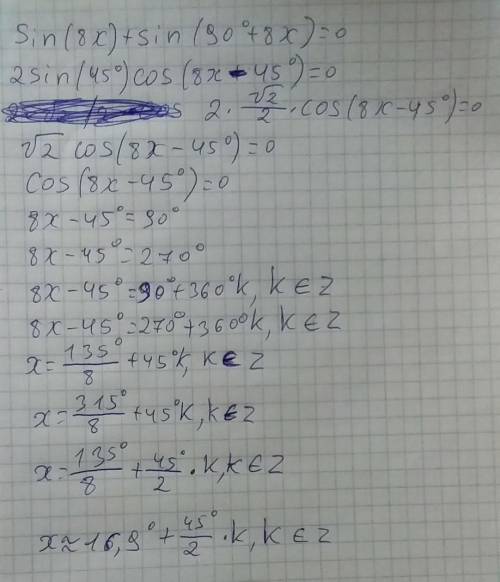 Sin(8x)+sin(90°+8x)=0
2sin(45°)cos(8x-45°)=0
2·√2/2·cos(8x-45°)=0
√2 cos(8x-45°)=0
cos(8x-45°)=0
8x-45°=90°
8x-45°=270°
8x-45°=90°+360°k, k∈Z
8x-45°=270°+360°k, k∈Z
x=135°/8+45°k, k∈Z
x=315°/8+45°k, k∈Z
x=135°/8+45°/2·k, k∈Z
x≈16,9°+45°/2·k, k∈Z